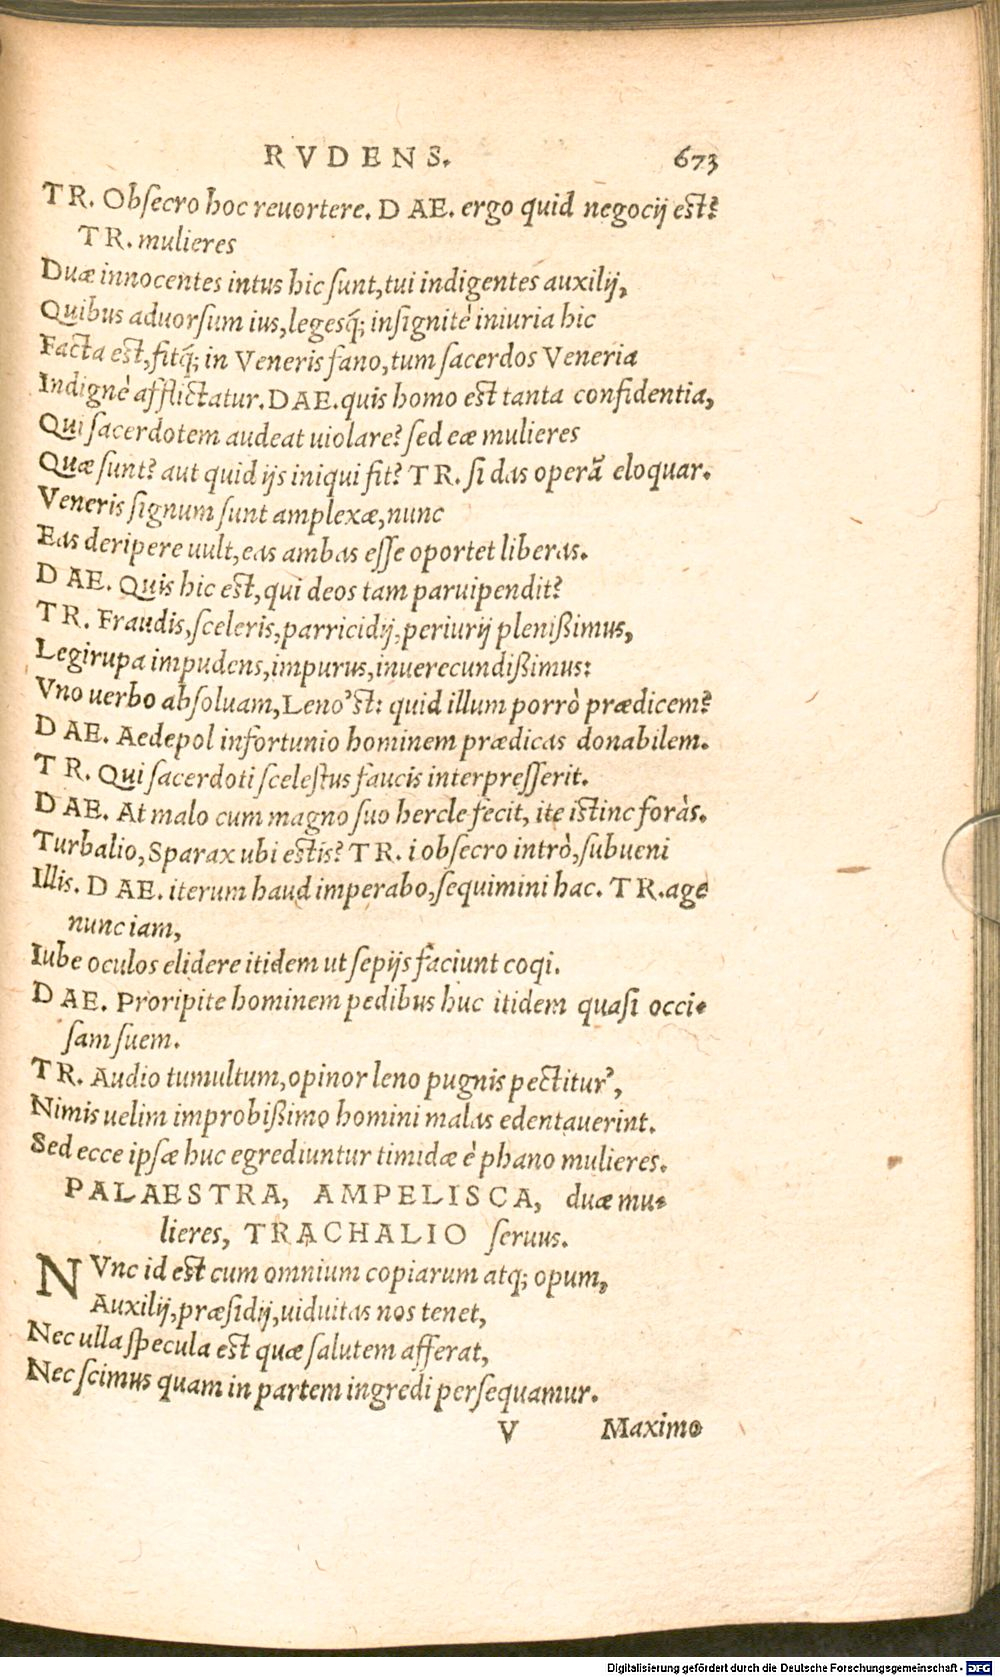 RVDENS. 673
TR. Obsecro hoc reuortere. DAE. ergo quid negocij est?
TR. mulieres
Duæ innocentes intus hic sunt, tui indigentes auxilij,
Quibus aduorsum ius, legesq́; insignitè iniuria hic
Facta est, fitq́; in Veneris fano, tum sacerdos Veneria
Indignè afflictatur. DAE. quis homo est tanta confidentia,
Qui sacerdotem audeat uiolare? sed eæ mulieres
Quæ sunt? aut quid ijs iniqui fit? TR. si das operā eloquar.
Veneris signum sunt amplexæ, nunc
Eas deripere uult, eas ambas esse oportet liberas.
DAE. Quis hic est, qui deos tam paruipendit?
TR. Fraudis, sceleris, parricidij, periurij plenißimus,
Legirupa impudens, impurus, inuerecundißimus:
Vno uerbo absoluam, Leno'st: quid illum porrò prædicem?
DAE. Aedepol infortunio hominem prædicas donabilem.
TR. Qui sacerdoti scelestus faucis interpresserit.
DAE. At malo cum magno suo hercle fecit, ite istinc foràs.
Turbalio, Sparax ubi estis? TR. i obsecro intrò, subueni
Illis. DAE. iterum haud imperabo, sequimini hac. TR. age
nunc iam,
Iube oculos elidere itidem ut sepijs faciunt coqi.
DAE. Proripite hominem pedibus huc itidem quasi occi-
sam suem.
TR. Audio tumultum, opinor leno pugnis pectitur',
Nimis uelim improbißimo homini malas edentauerint.
Sed ecce ipsæ huc egrediuntur timidæ è phano mulieres.
PALAESTRA, AMPELISCA, duæ mu-
lieres, TRACHALIO seruus.
NVnc id est cum omnium copiarum atq; opum,
Auxilij, præsidij, uiduitas nos tenet,
Nec ulla specula est quæ salutem afferat,
Nec scimus quam in partem ingredi persequamur.
V Maximo
Digitalisierung gefördert durch die Deutsche Forschungsgemeinschaft - DFG